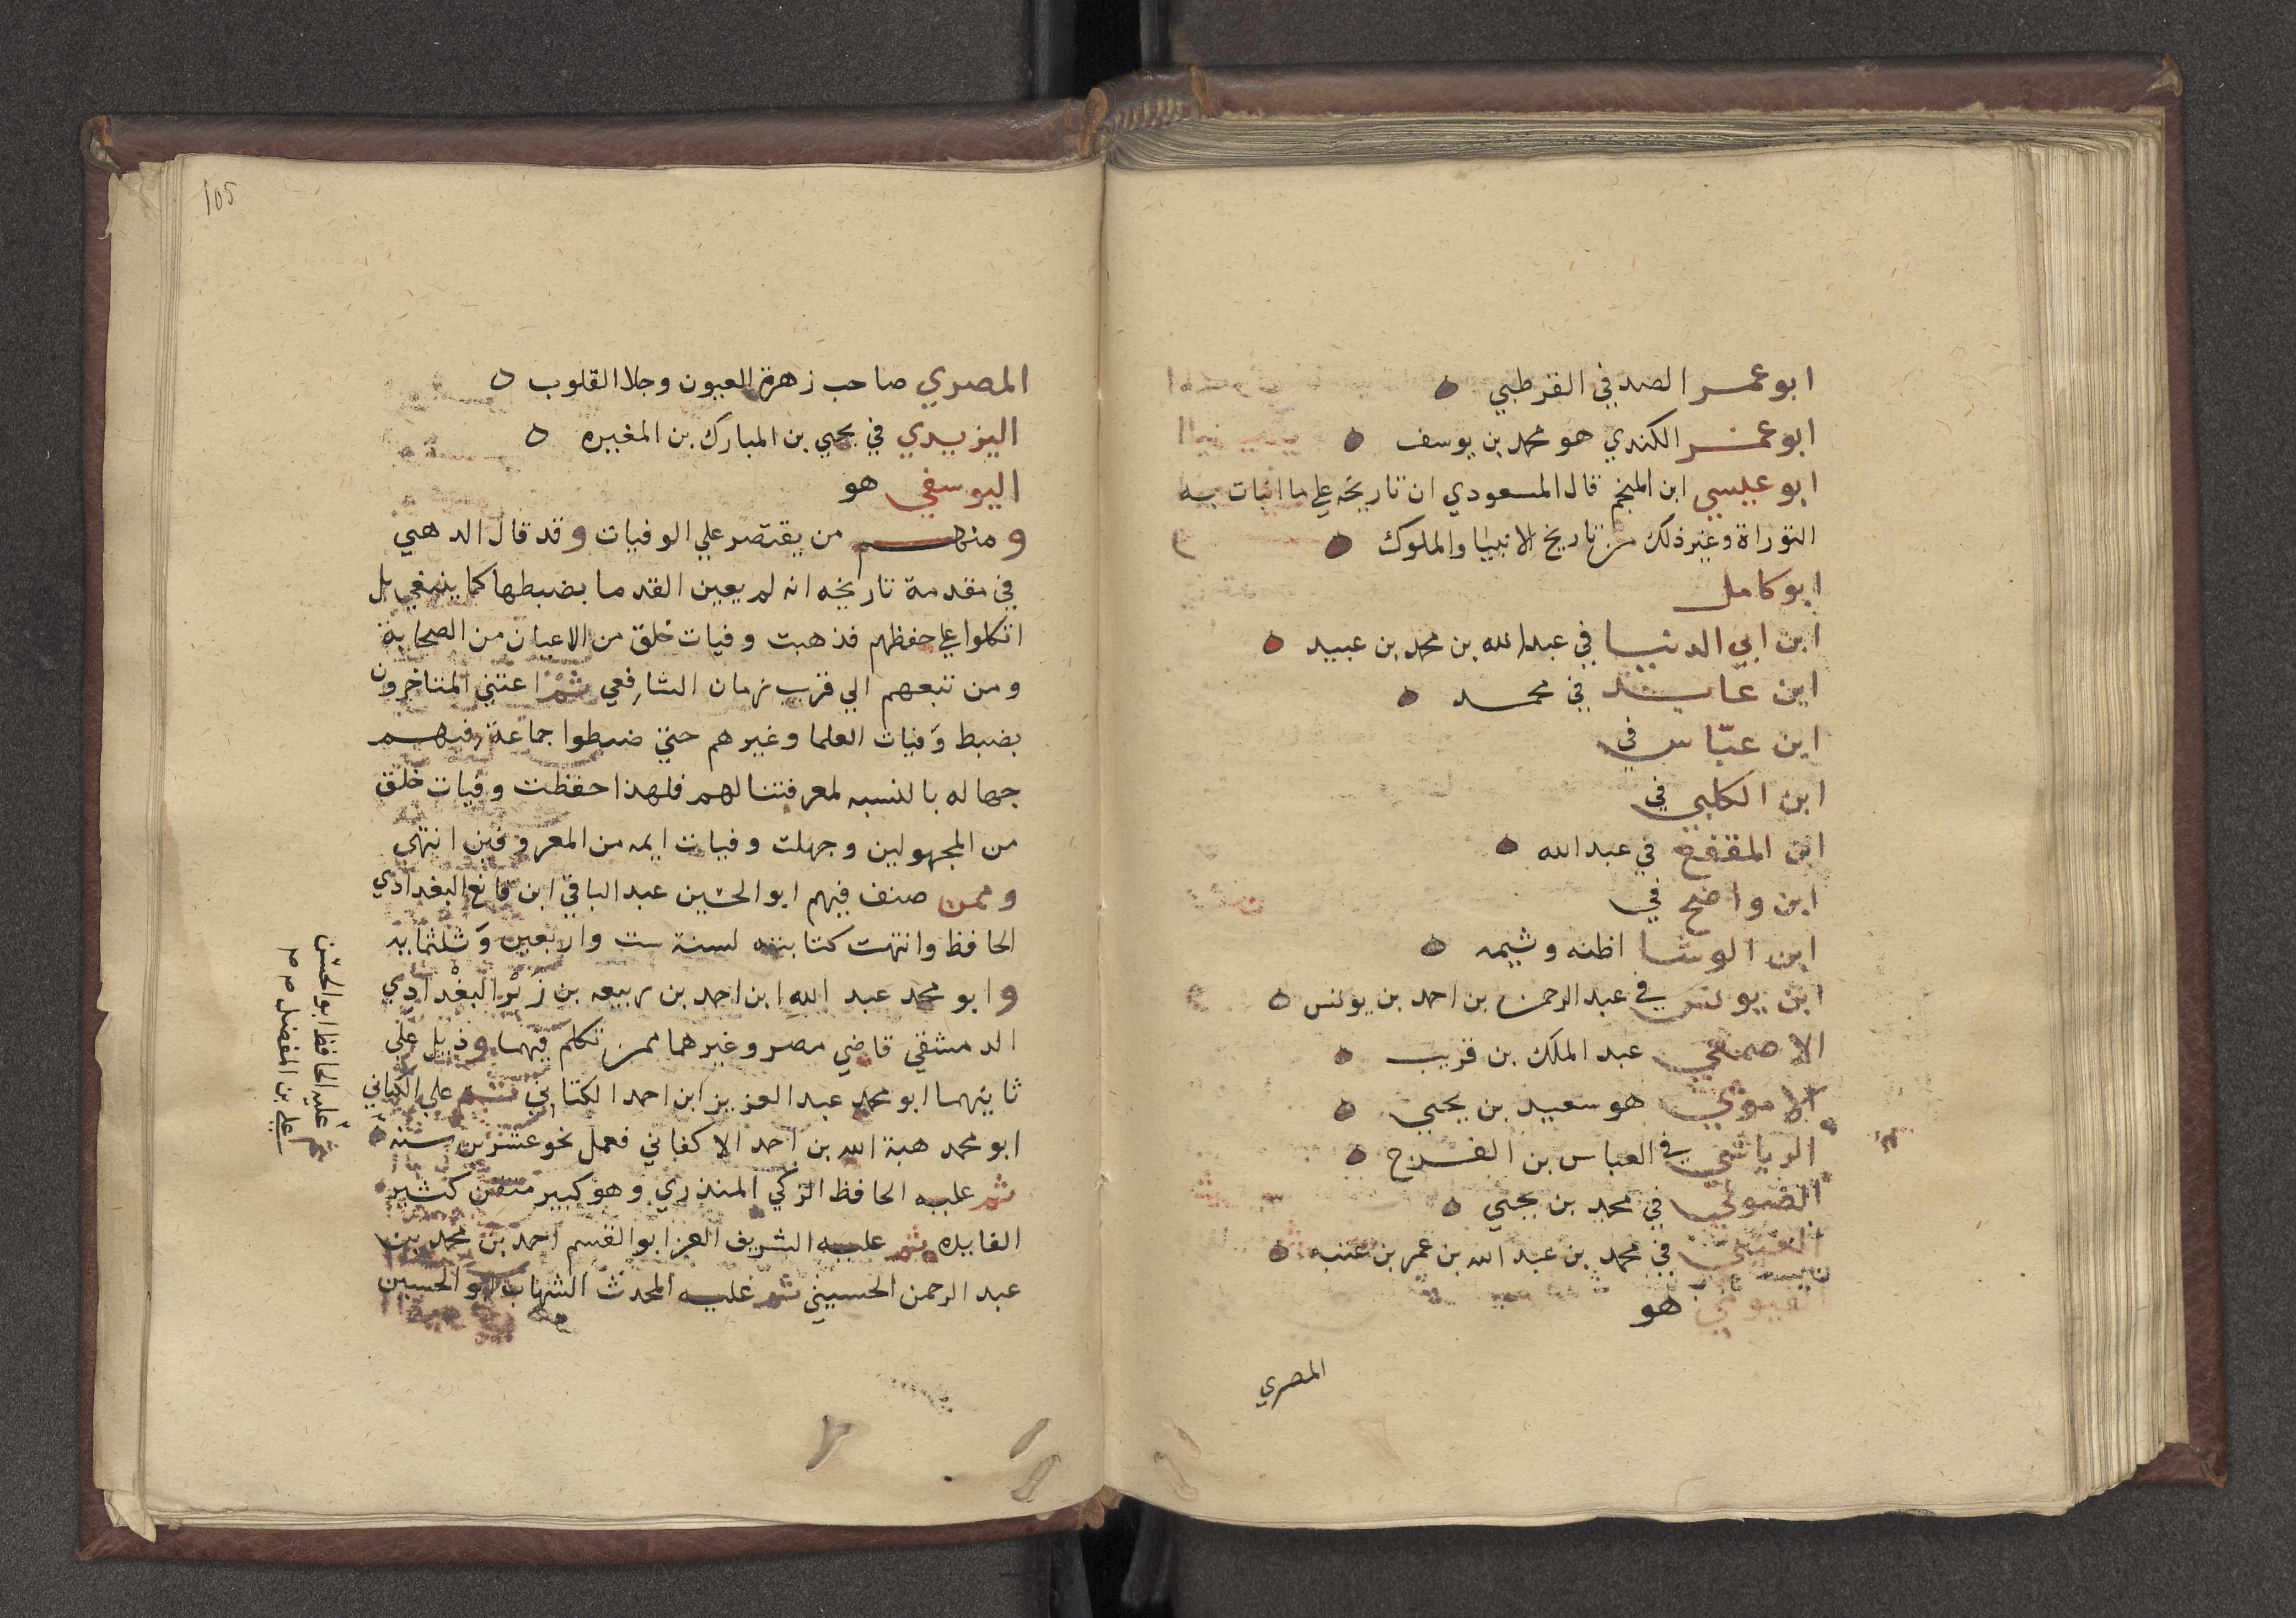 ابو عمر الصدفي القرطبي
ابو عمر الكندي هو محمد بن يوسف
ابو عيسي ابن المنجم قال المسعودي ان تاريخه علي ما انبات به
التوراة وغير ذلك من تاريخ الانبيا والملوك
ابو كامل
ابن ابي الدنيا في عبد الله بن محمد بن عبيد
ابن عايد في محمد
ابن عبّاس في
ابن الكلبي في
ابن المقفع في عبد الله
ابن واضح في
ابن الوشا اظنه وثيمه
ابن يونس في عبد الرحمن بن احمد بن يونس
الاصمعي عبد الملك بن قريب
الاموي هو سعيد بن يحيي
الرياشي في العباس بن الفرج
الصولي في محمد بن يحيي
العتبي في محمد بن عبد الله بن عمر بن عتبه
الفيومي هو
المصري
105
المصري صاحب زهرة العيون وجلا القلوب
اليزيدي في يحيي بن المبارك بن المغيره
اليوسفي هو
ومنهم من يقتصر علي الوفيات وقد قال الدهبي
في مقدمة تاريخه انه لم يعين القدما بضبطها كما ينبغي بل
اتكلوا علي حفظهم فذهبت وفيات خلق من الاعيان من الصحابة
ومن تبعهم الي قرب زمان الشافعي ثم اعتني المتاخرون
بضبط وَفيات العلما وغيرهم حتي ضبطوا جماعة فيهم
جهاله بالنسبه لمعرفتنا لهم فلهذا حفظت وفيات خلق
من المجهولين وجهلت وفيات ايمه من المعروفين انتهي
وممن صنف فيهم ابو الحسين عبد الباقي ابن قانع البغدادي
الحافظ وانتهت كتابته لسنة ست واربعين وَثلثمايه
وابو محمد عبد الله ابن احمد بن ربيعه بن زَبْر البغْدادي
الدمشقي قاضي مصر وغيرهما ممن تكلم فيهما وذيل علي
ثانيهما ابو محمد عبد العزيز ابن احمد الكتاني ثم علي الكتاني
ابو محمد هبة الله بن احمد الاكفاني فعمل نحو عشرين سنه
ثم عليه الحافظ الزكي المنذري وهو كبير متقن كثير
الفايده ثم عليه الشريف العز ابو القسم احمد بن محمد بن
عبد الرحمن الحسيني ثم عليه المحدث الشهاب ابو الحسين
ثم عليه الحافظ ابو الحسن
علي بن المفضل